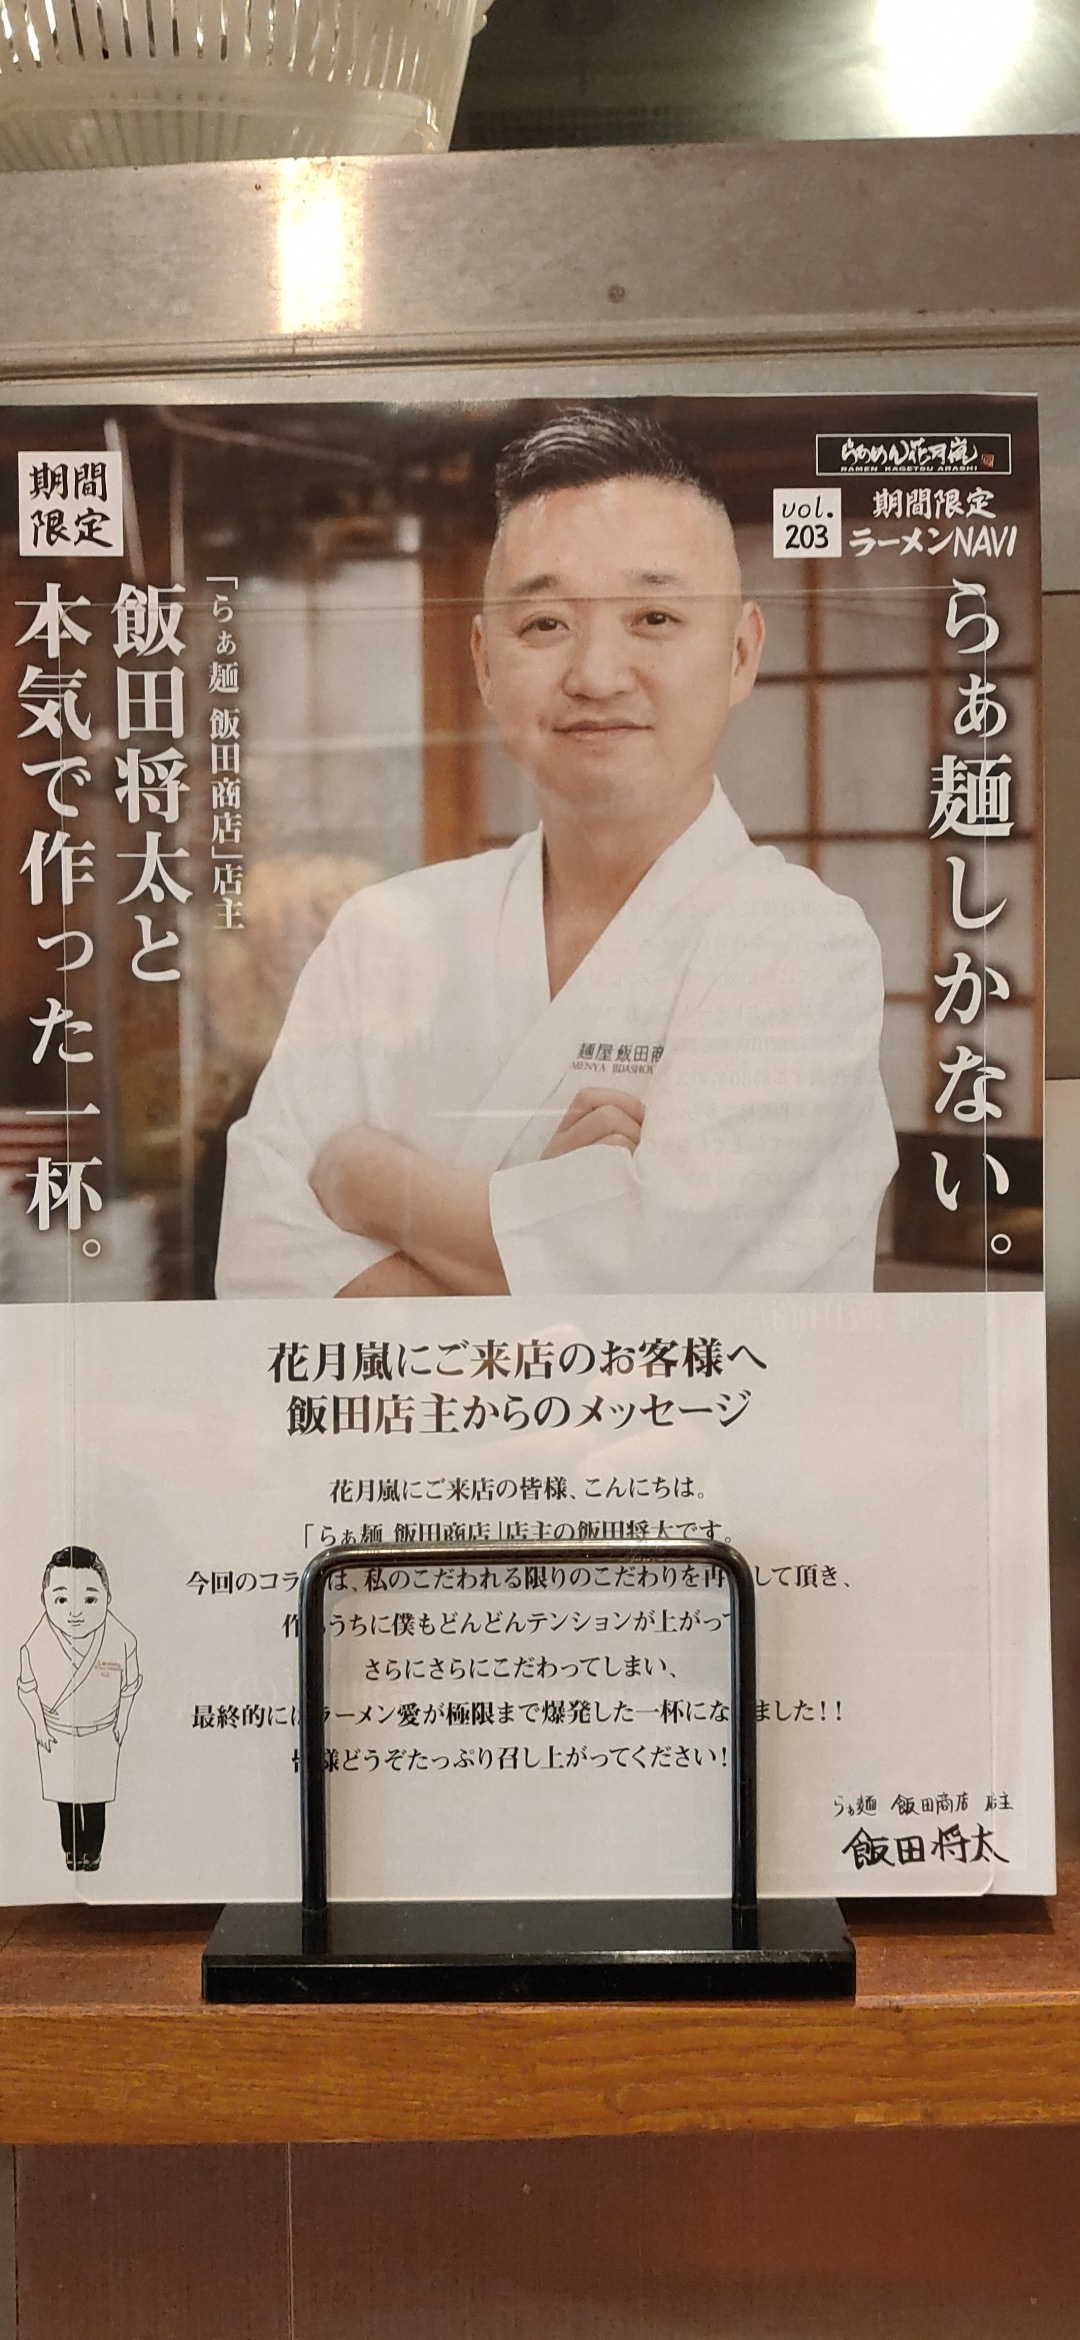 期間
限定
らぁめん花月嵐
RAMEN KAGETSU ARASHI
vol.
203
期間限定
ラーメンNAVI
らぁ麺しかない。
「らぁ麺 飯田商店」店主
飯田将太と
本気で作った一杯。
麺屋 飯田商
MENYA IIDASHOU
花月嵐にご来店のお客様へ
飯田店主からのメッセージ
花月嵐にご来店の皆様、こんにちは。
「らぁ麺 飯田商店」店主の飯田将太です。
今回のコラ は、私のこだわれる限りのこだわりを再 して頂き、
作 うちに僕もどんどんテンションが上がって
さらにさらにこだわってしまい、
最終的に ラーメン愛が極限まで爆発した一杯にな ました!!
皆様どうぞたっぷり召し上がってください!
らぁ麺 飯田商店 店主
飯田将太